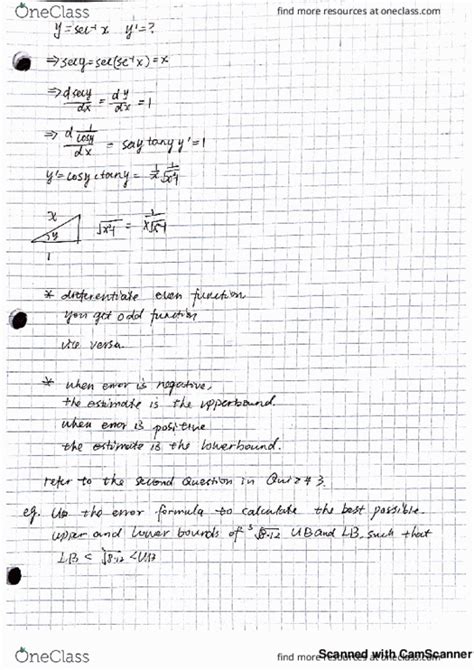 OneClass
find more resources at oneclass.com
y = sec⁻¹ x   y' = ?
⇒ secy = sec(sec⁻¹x) = x
⇒ d secy / dx = dy / dx = 1
⇒ d 1/cosy / dx = secy tany y' = 1
y' = cosy ctany = 1/x
x
y
1
* differentiate even function
you get odd function
vice versa
* when error is negative,
the estimate is the upperbound.
when error is positive
the estimate is the lowerbound.
refer to the second question in Quiz # 3.
eg. Use the error formula to calculate the best possible
upper and lower bounds of ³√8.12 UB and LB, such that
LB < ³√8.12 < UB
OneClass
find more resources at oneclass.com
Scanned with CamScanner